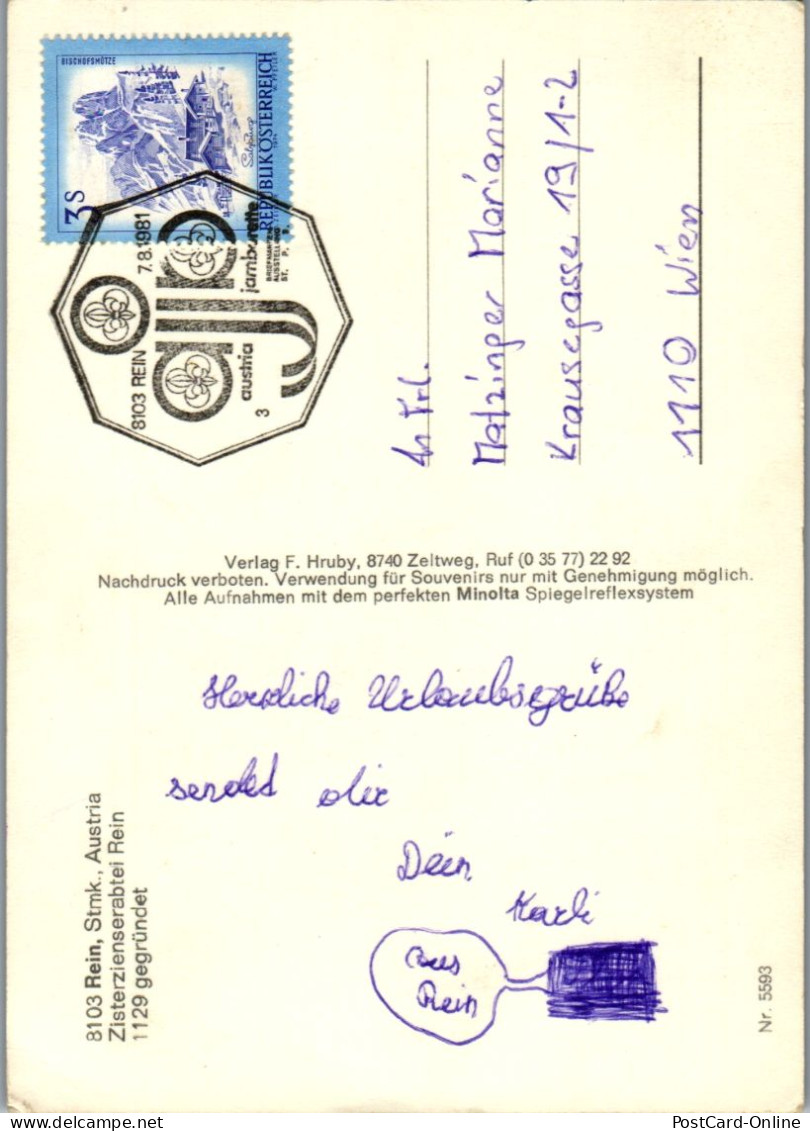 BISCHOFSMÜTZE
3 S
REPUBLIK ÖSTERREICH
8103 REIN 7.8.1981
austria jamborette
BRIEFMARKEN
AUSSTELLUNG
ST. P. B.
3
An Frl.
Matzinger Marianne
Krausegasse 19/1-2
1110 Wien
Verlag F. Hruby, 8740 Zeltweg, Ruf (0 35 77) 22 92
Nachdruck verboten. Verwendung für Souvenirs nur mit Genehmigung möglich.
Alle Aufnahmen mit dem perfekten Minolta Spiegelreflexsystem
Herzliche Urlaubsgrüße
sendet dir
Dein
Karli
aus
Rein
8103 Rein, Stmk., Austria
Zisterzienserabtei Rein
1129 gegründet
Nr. 5593
PostCard-Online